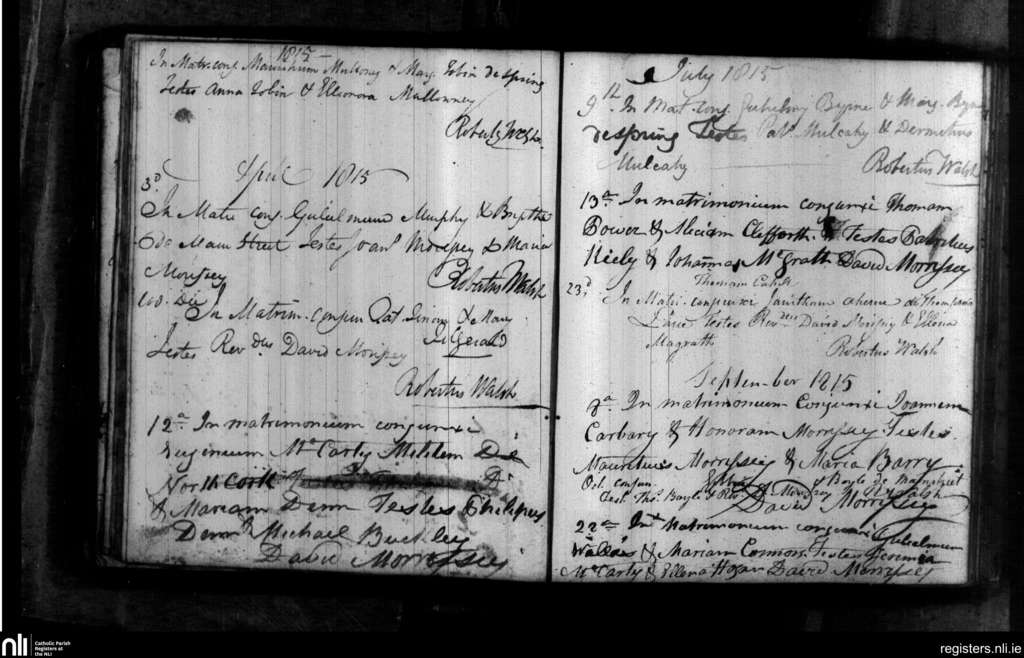 1815 —
In Matr. conj. Mauritium Mulloney & Mary Tobin de Spring
Testes Anna Tobin & Elleonora Mullowney
Robertus Walsh
April 1815
3d.
In Matri conj. Gulielmum Murphy &
de Main Street Testes Joan Morissey & Maria
Morissey
Robertus Walsh
Eo. Die In Matrim. conjun Pat & Mary
FitzGerald
Testes Revdus David Morissey
Robertus Walsh
12a In matrimonium conjunxi
Eugenium McCarty Militem De
North Cork
& Mariam Dunn Testes Philipus
Dunn & Michael Buckley
David Morrissey
July 1815
9th In Mat. conj. Gulielmy Byrne & Mary
de Spring Testes Patt Mulcahy & Dermitius
Mulcahy
Robertus Walsh
13a In matrimonium conjunxi Thomam
Power & Aliciam Clifforth & Testes
Kiely & Johannas McGrath David Morrissey
Thomam Cahill
23d In Matri. conjunxi aherin de Thompson's
Lane Testes Revdus David Morissey & Ellena
Magrath
Robertus Walsh
September 1815
In matrimonium Conjunxi Joannem
Carbary & Honoram Morrissey Testes
Mauritius Morrissey & Maria Barry
Oct. conjun. & Boyle de Mainstreet
Test. Thos. Boyle & Revd R. Walsh
David Morrissey
22a In Matrimonium conjunxi Gulielmum
Wallace & Mariam Connors Testes
McCarty & Ellena Hogan David Morrissey
nli
Catholic Parish
Registers at
the NLI
registers.nli.ie